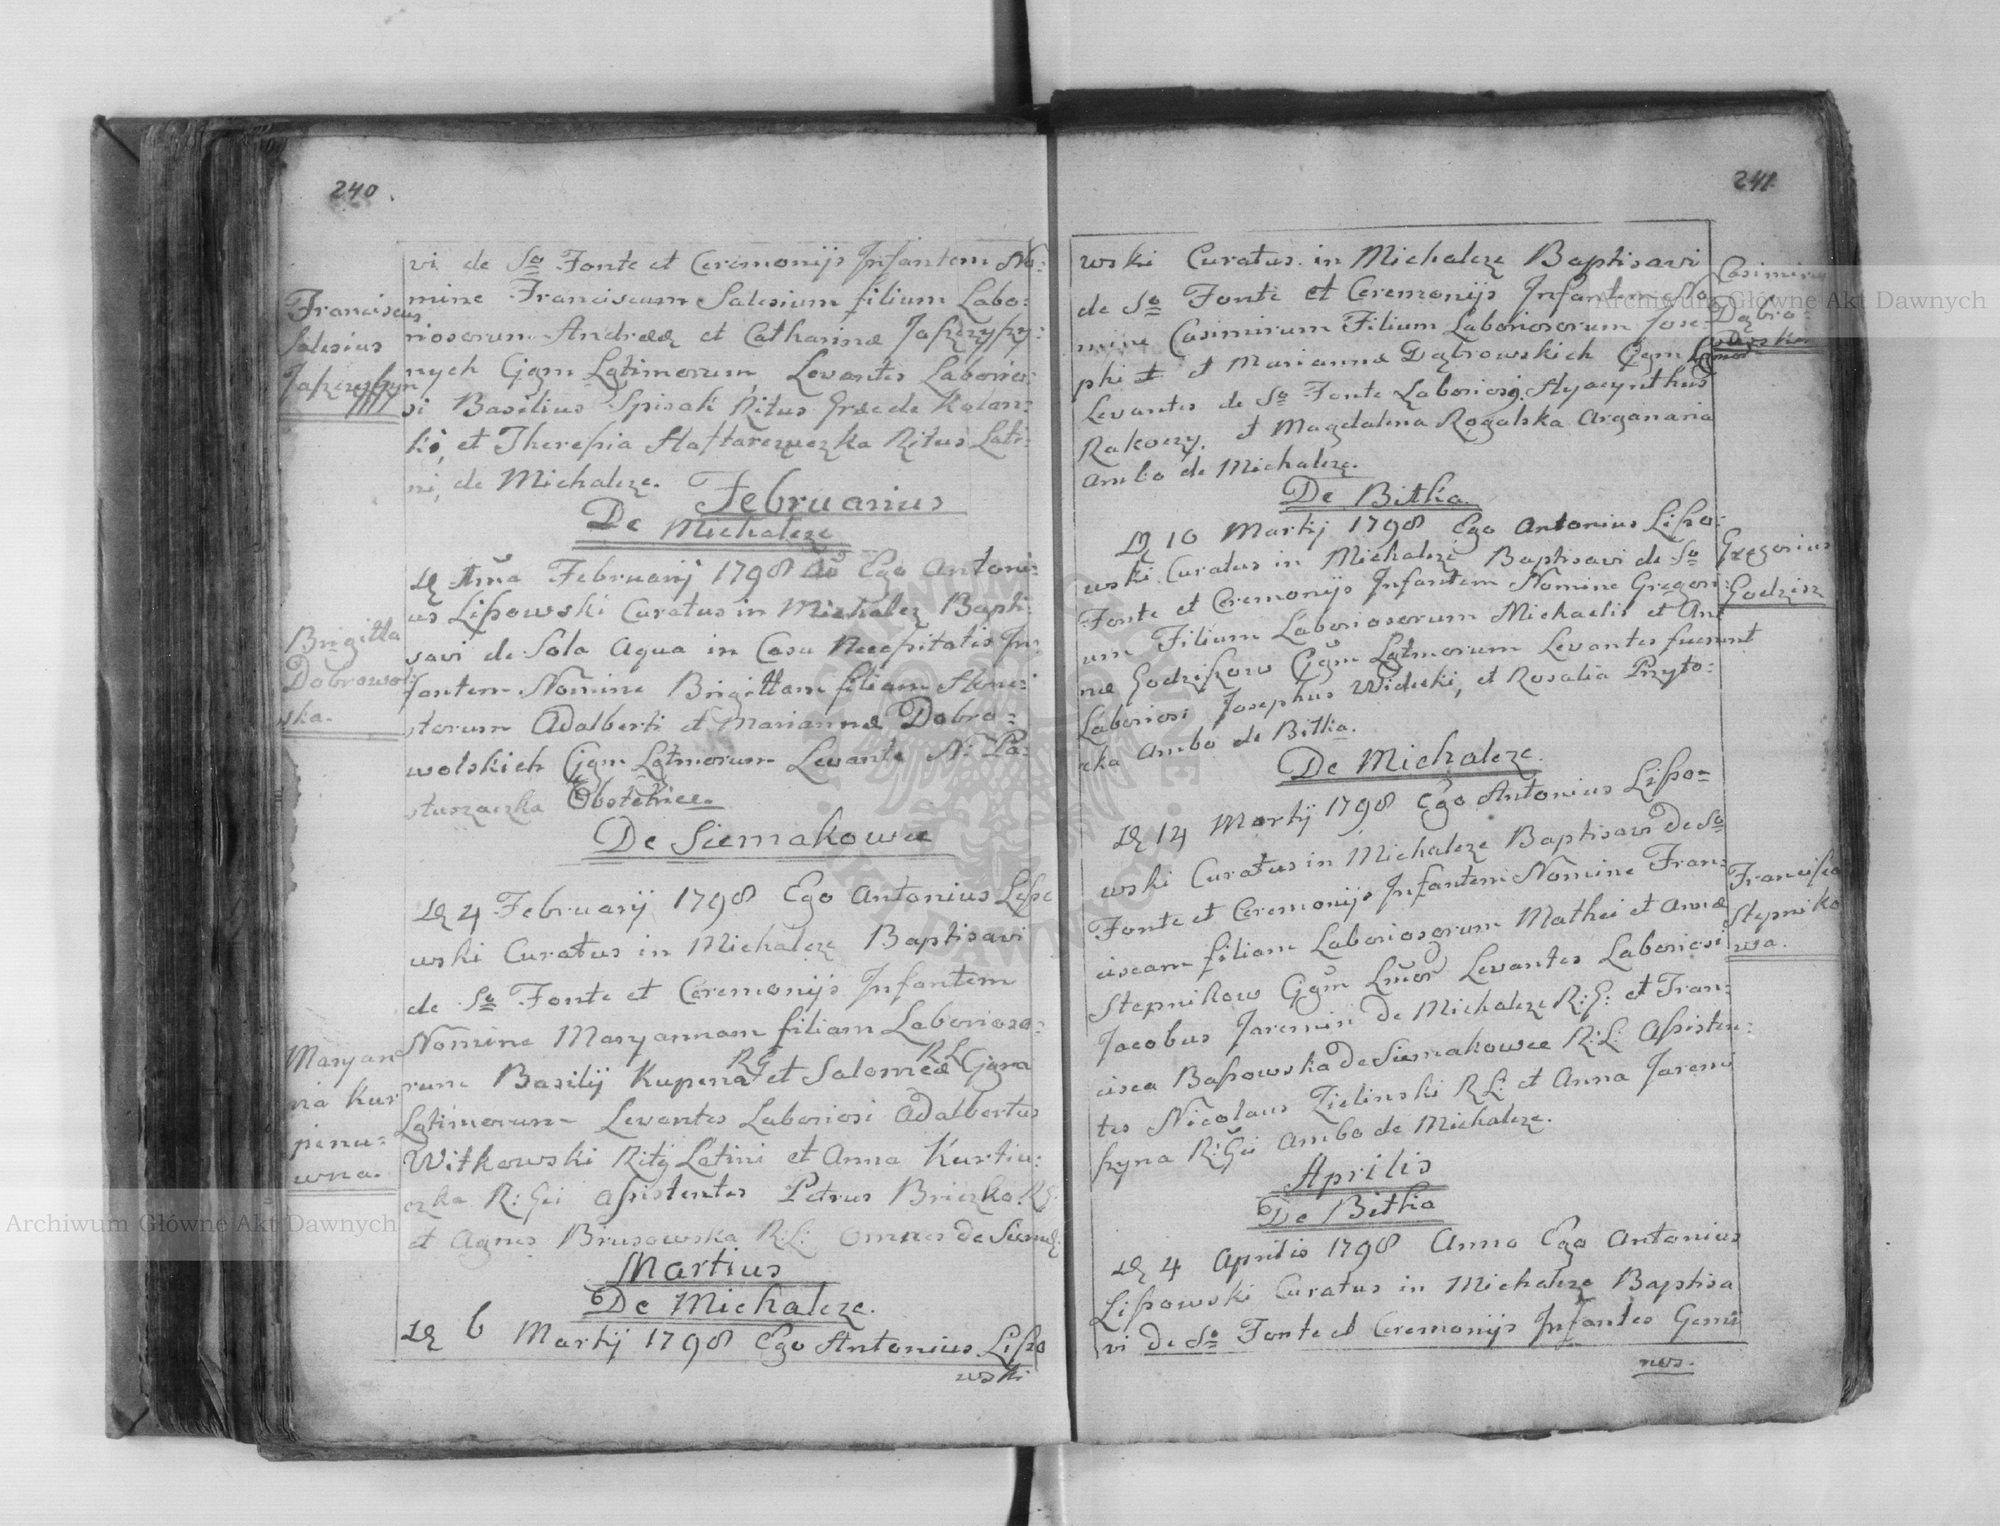 240.
vi de So Fonte et Ceremonijs Infantem No:
mine Franciscum Salesium filium Labo:
riosorum Andreæ et Catharinæ
nych Cjgm Lgtimorum, Levantes Laborio:
si Basilius Spisak Ritus Græ de Kolan:
ki, et Theresia Ritus Lati:
ni, de Michalcze.
Franciscus
Salesius
Februarius
De Michalcze
Februarij 1798 Ego Antoni:
us Lipowski Curatus in Michalcz Bapti:
savi de Sola Aqua in Casu Necessitatis In:
fantem Nomine Brigittam filiam Hone:
storum Adalberti et Mariannæ Dobro:
wolskich Cjgm Lgtmorum Levante N: Pa:
stuszaczka Obstetrice.
Brigitta
Dobrowol
ska.
De Siemakowce
4 Februarij 1798 Ego Antonius Lipo
wski Curatus in Michalcze Baptisavi
de So Fonte et Ceremonijs Infantem
Nomine Maryannam filiam Laborioso:
rum Basilij Kupena RG et Salomeæ RL Cjgm
Lgtimorum Levantes Laboriosi Adalbertus
Witkowski Ritg Latini et Anna Kurtiu:
czka R: Gci Assistentes Petrus Briczko R G:
et Agnes Brusowska R: L: omnes de Siemak:
Maryan
na Kur
pienu:
wna.
Martius
De Michalcze.
6 Martij 1798 Ego Antonius Lipo
wski
241.
wski Curatus in Michalcze Baptisavi
de So Fonte et Ceremonijs Infantem No
mine Casimirum Filium Laboriosorum Jose:
phi et Mariannæ Dąbrowskich Cjgm
Levantes de So Fonte Laboriosi Hyacynthus
Rakoczy. et Magdalena Rogalska Arganaria
Ambo de Michalcze.
Casimirus
Dąbro:
wski
De Bitka.
10 Martij 1798 Ego Antonius Lipo:
wski Curatus in Michalcze Baptisavi de So
Fonte et Ceremonijs Infantem Nomine Gregori:
um Filium Laboriosorum Michaelis et An
næ Godziszow Cjgm Lgtmorum Levantes fuerunt
Laboriosi Josephus Widecki, et Rosalia Przyto:
cka Ambo de Bitka.
Gregorius
Godzisz
De Michalcze.
14 Martij 1798 Ego Antonius Lipo=
wski Curatus in Michalcze Baptisavi de So
Fonte et Ceremonijs Infantem Nomine Fran:
ciscam filiam Laboriosorum Mathei et Annæ
Stepnikow Cjgm Levantes Laboriosi
Jacobus Jaremin de Michalcze R: G: et Fran:
cisca Bapowska de Siemakowce R: L: Assisten:
tes Nicolaus Zielinski R L: et Anna Jaremi
szyna R: Gci Ambo de Michalcze.
Francisca
Stepniko
wa.
Aprilis
De Bitka
4 Aprilis 1798 Anno Ego Antonius
Lipowski Curatus in Michalcze Baptisa
vi de So Fonte et Ceremonijs Infantes Gemi
nos.
Archiwum Główne Akt Dawnych
Archiwum Główne Akt Dawnych